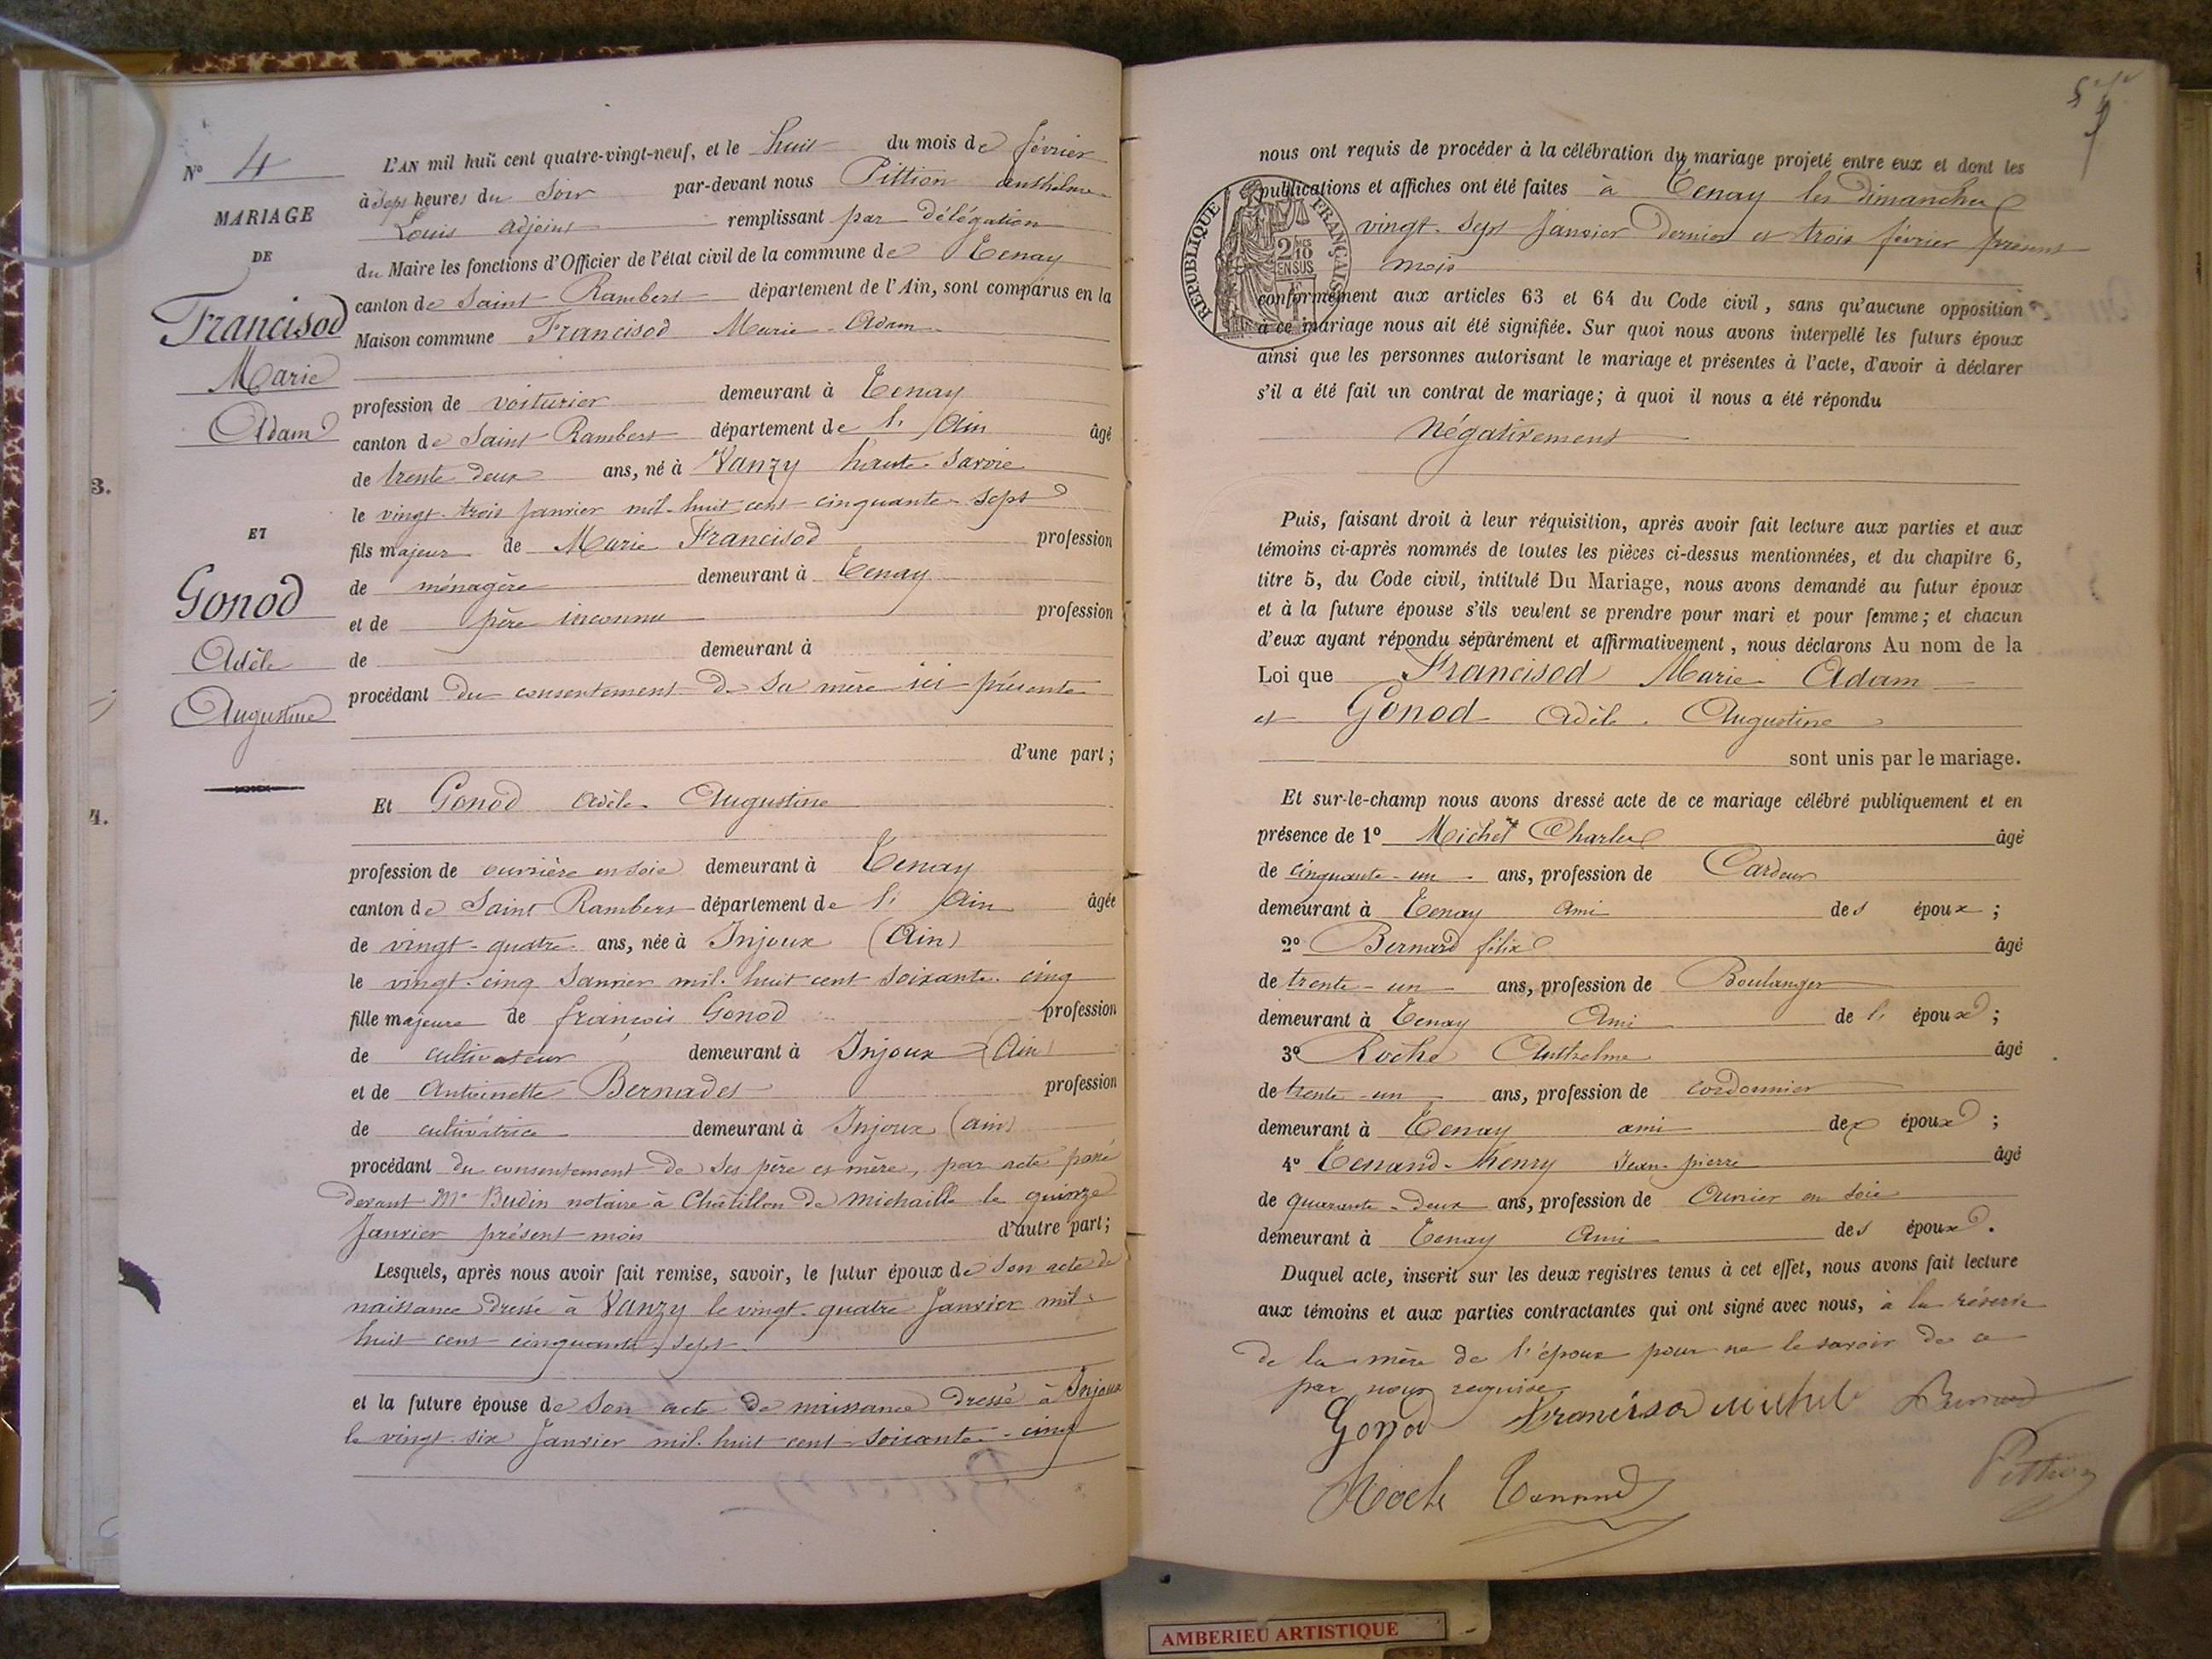 N° 4
MARIAGE
DE
Francisod
Marie
Adam
ET
Gonod
Adèle
Augustine
3.
4.
L'AN mil huit cent quatre-vingt-neuf, et le huit du mois de février
à sept heures du soir par-devant nous Pittion Anthelme
Louis adjoint remplissant par délégation
du Maire les fonctions d'Officier de l'état civil de la commune de Tenay
canton de Saint Rambert département de l'Ain, sont comparus en la
Maison commune Francisod Marie-Adam
profession de voiturier demeurant à Tenay
canton de Saint Rambert département de l'Ain âgé
de trente deux ans, né à Vanzy haute-Savoie
le vingt-trois janvier mil-huit cent cinquante-sept
fils majeur de Marie Francisod profession
de ménagère demeurant à Tenay
et de père inconnu profession
de demeurant à
procédant du consentement de sa mère ici présente
d'une part ;
Et Gonod Adèle Augustine
profession de ouvrière en soie demeurant à Tenay
canton de Saint Rambert département de l'Ain âgée
de vingt-quatre ans, née à Injoux (Ain)
le vingt-cinq Janvier mil-huit cent soixante-cinq
fille majeure de françois Gonod profession
de cultivateur demeurant à Injoux (Ain)
et de Antoinette Bernades profession
de cultivatrice demeurant à Injoux (ain)
procédant du consentement de ses père et mère, par acte passé
devant Me Budin notaire à Châtillon de Michaille le quinze
Janvier présent mois d'autre part ;
Lesquels, après nous avoir fait remise, savoir, le futur époux de son acte de
naissance dressé à Vanzy le vingt-quatre Janvier mil-
huit cent cinquante-sept
et la future épouse de son acte de naissance dressé à Injoux
le vingt-six Janvier mil-huit cent-soixante-cinq
nous ont requis de procéder à la célébration du mariage projeté entre eux et dont les
publications et affiches ont été faites à Tenay les dimanches
vingt-sept Janvier dernier et trois février présent
mois
REPUBLIQUE FRANÇAISE
2/10 EN SUS
conformément aux articles 63 et 64 du Code civil, sans qu'aucune opposition
à ce mariage nous ait été signifiée. Sur quoi nous avons interpellé les futurs époux
ainsi que les personnes autorisant le mariage et présentes à l'acte, d'avoir à déclarer
s'il a été fait un contrat de mariage ; à quoi il nous a été répondu
Négativement
Puis, faisant droit à leur réquisition, après avoir fait lecture aux parties et aux
témoins ci-après nommés de toutes les pièces ci-dessus mentionnées, et du chapitre 6,
titre 5, du Code civil, intitulé Du Mariage, nous avons demandé au futur époux
et à la future épouse s'ils veulent se prendre pour mari et pour femme ; et chacun
d'eux ayant répondu séparément et affirmativement, nous déclarons Au nom de la
Loi que Francisod Marie-Adam
et Gonod Adèle Augustine
sont unis par le mariage.
Et sur-le-champ nous avons dressé acte de ce mariage célébré publiquement et en
présence de 1° Michel Charles âgé
de cinquante-un ans, profession de Cardeur
demeurant à Tenay Ami des époux ;
2° Bernard félix âgé
de trente-un ans, profession de Boulanger
demeurant à Tenay Ami de l' époux ;
3° Roche Anthelme âgé
de trente-un ans, profession de cordonnier
demeurant à Tenay ami des époux ;
4° Tenand-Henry Jean-pierre âgé
de quarante-deux ans, profession de Ouvrier en soie
demeurant à Tenay Ami des époux.
Duquel acte, inscrit sur les deux registres tenus à cet effet, nous avons fait lecture
aux témoins et aux parties contractantes qui ont signé avec nous, à la réserve
de la mère de l'époux pour ne le savoir de ce
par nous requise
Gonod Francisod Michel Bernard
Roche Tenand Pittion
AMBERIEU ARTISTIQUE